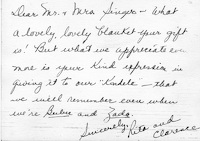 Dear Mr. & Mrs. Singer - What
a lovely, lovely blanket your gift
is! But what we appreciate even
more is your kind expression in
giving it to our "Kindela" - that
we will remember even when
we're Bubie and Zada.
Sincerely, Rita and
Clarence